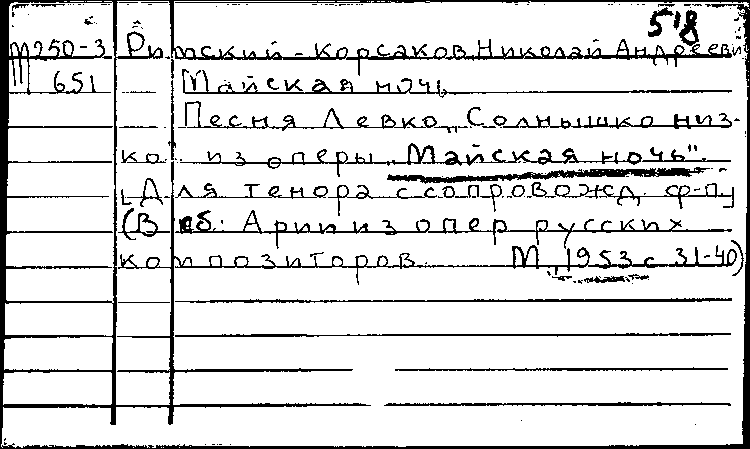 518
М250-3 Римский-Корсаков, Николай Андрееви
651 Майская ночь
Песня Левко „Солнышко низ-
ко" из оперы „Майская ночь".
[Для тенора с сопровожд. ф-п]
(В сб.: Арии из опер русских
композиторов. М., 1953 с 31-40)